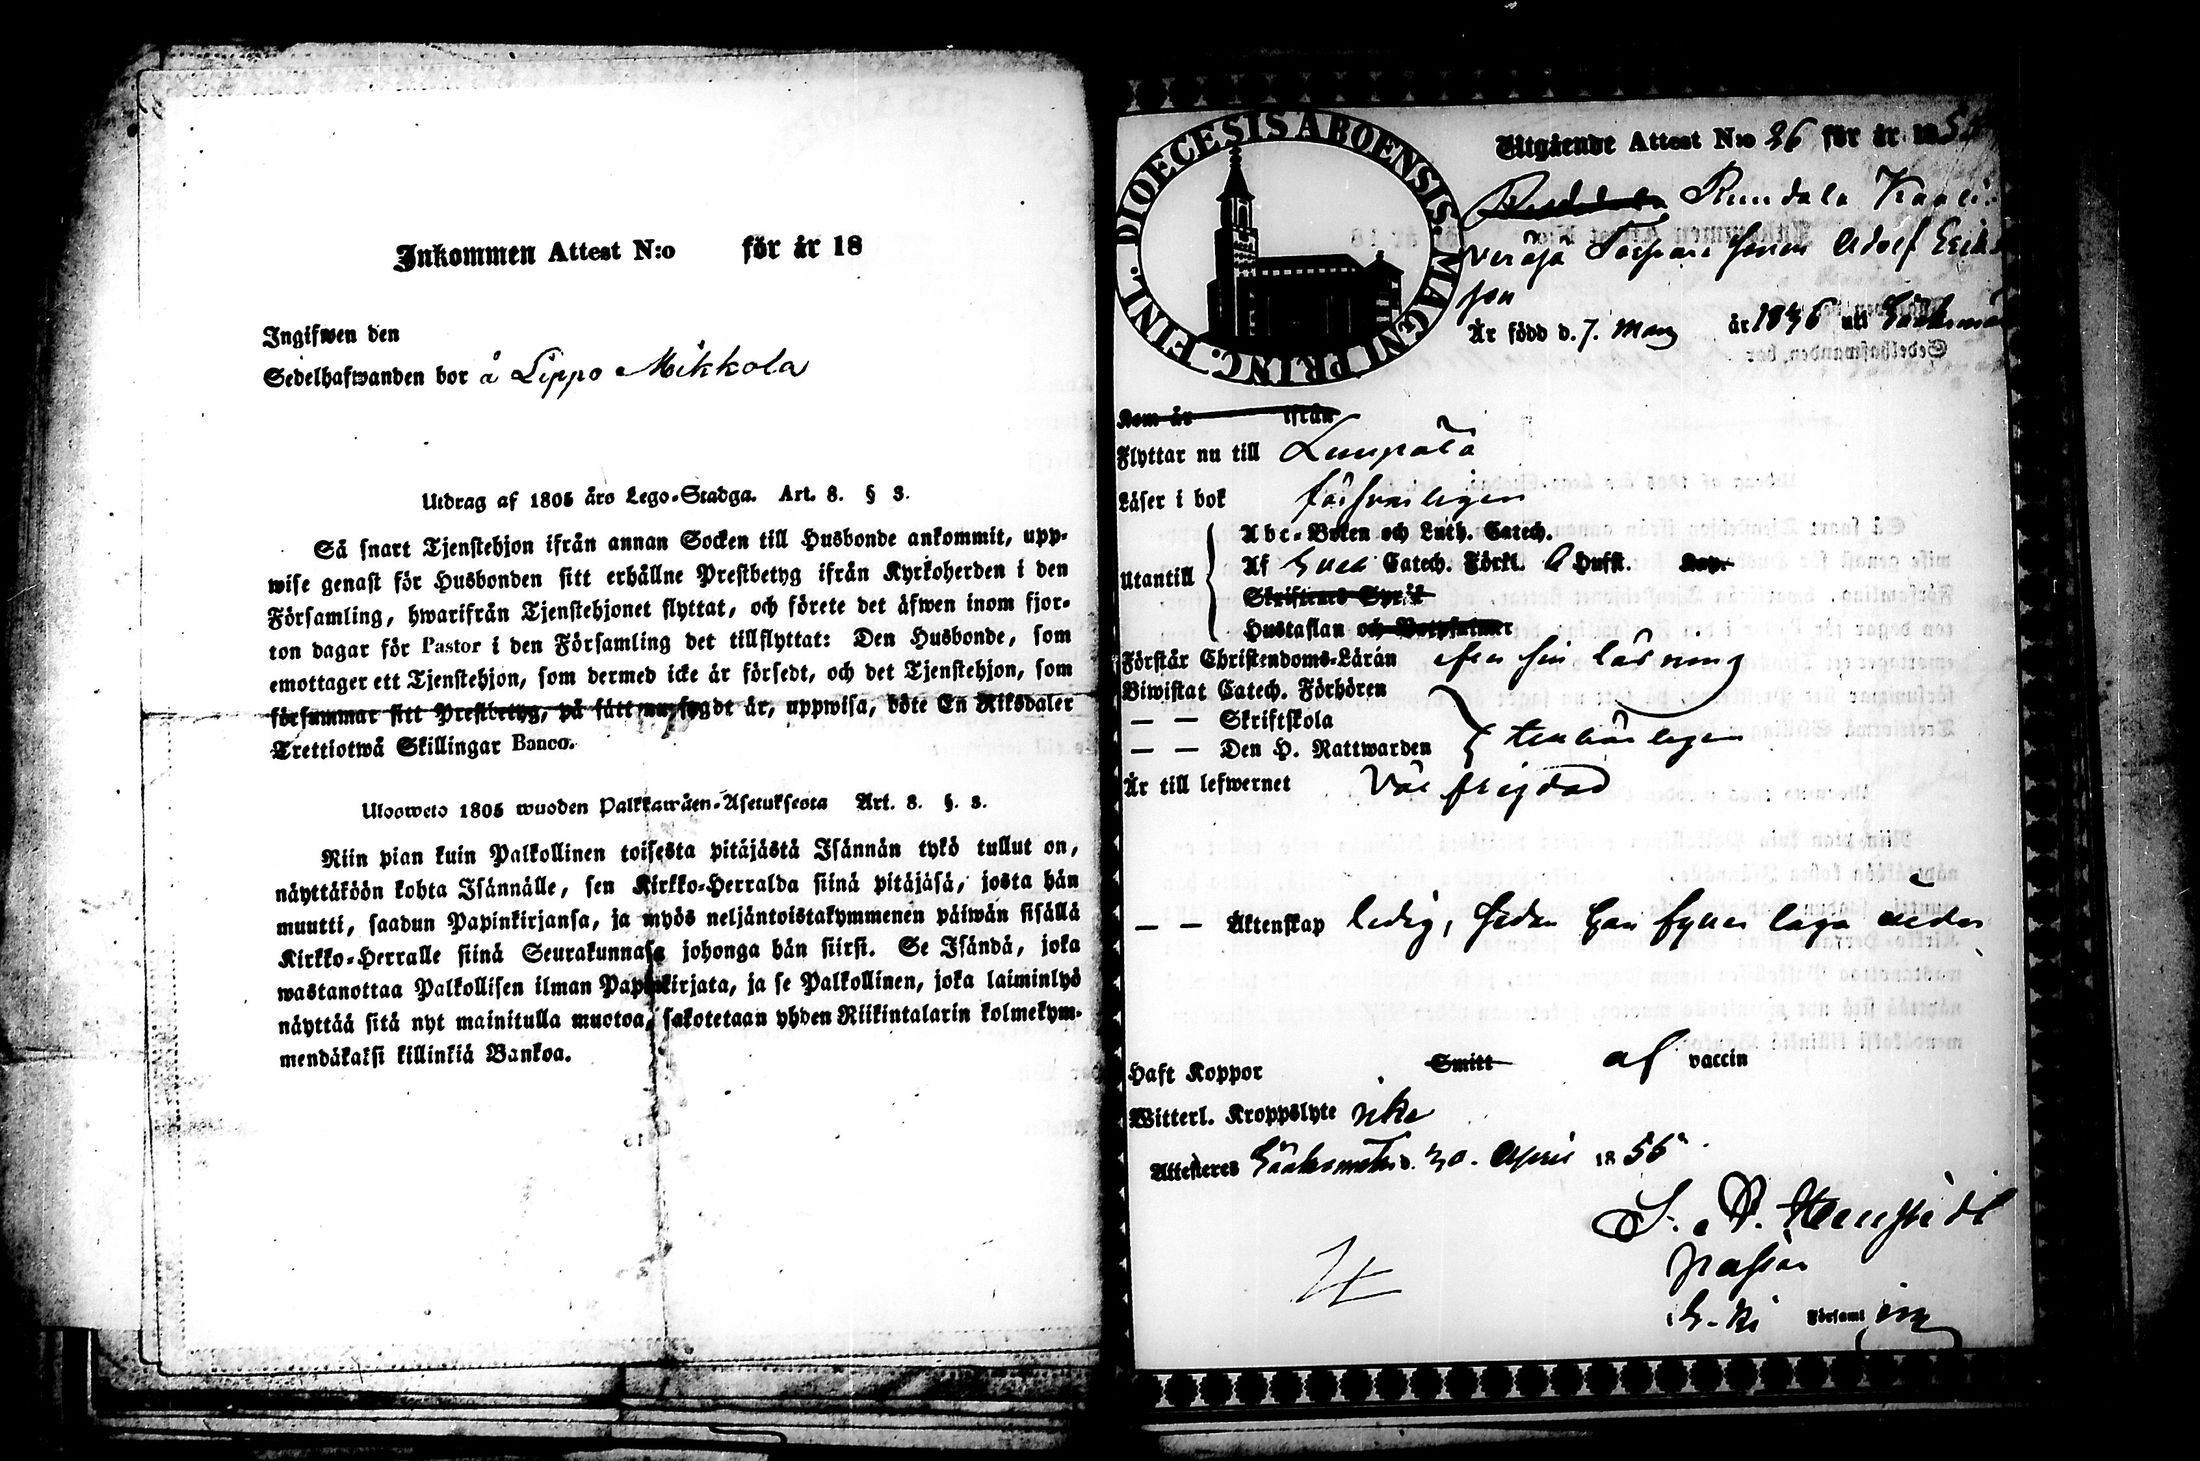 Inkommen Attest N:o för år 18
Ingifwen den
Sedelhafwanden bor å Lippo Mikkola
Utdrag af 1805 års Lego-Stadga. Art. 8. § 3.
Så snart Tjenstehjon ifrån annan Socken till Husbonde ankommit, upp-
wise genast för Husbonden sitt erhållne Prestbetyg ifrån Kyrkoherden i den
Församling, hwarifrån Tjenstehjonet flyttat, och förete det äfwen inom fjor-
ton dagar för Pastor i den Församling det tillflyttat: Den Husbonde, som
emottager ett Tjenstehjon, som dermed icke är försedt, och det Tjenstehjon, som
försummar sitt Prestbetyg, på sätt nu sagdt är, uppwisa, böte En Riksdaler
Trettiotwå Skillingar Banco.
Ulosweto 1805 wuoden Palkkawäen-Asetuksesta Art. 8. §. 3.
Niin pian kuin Palkollinen toisesta pitäjästä Isännän tykö tullut on,
näyttäköön kohta Isännälle, sen Kirkko-Herralda siinä pitäjäsä, josta hän
muutti, saadun Papinkirjansa, ja myös neljäntoistakymmenen päiwän sisällä
Kirkko-Herralle siinä Seurakunnasa johonga hän siirsi. Se Isändä, joka
wastanottaa Palkollisen ilman Papinkirjata, ja se Palkollinen, joka laiminlyö
näyttää sitä nyt mainitulla muotoa, sakotetaan yhden Riikintalarin kolmekym-
mendäkaksi killinkiä Bankoa.
DIOECESIS ABOENSIS. MAGNI PRINC. FINL.
Utgående Attest N:o 26 för år 185
Rundala
Torpare sonen Adolf Eriks
son
Är född d. 7. Mars år 1836 uti Sääksmäki
Kom år ifrån
Flyttar nu till Lempälä
Läser i bok försvarligen
Utantill
Abc-Boken och Luth. Catech.
Af Catech. Förkl. Hufst. Kap.
Skriftens Språk
Hustaflan och Botpsalmer
Förstår Christendoms-Läran efter sin läsning
Biwistat Catech. Förhören
— — Skriftskola
— — Den H. Nattwarden
tenbärligen
Är till lefwernet väl frejdad
— — Äktenskap ledig, sedan han fyller laga ålder
Haft Koppor Smitt af vaccin
Witterl. Kroppslyte icke
Attesteras Sääksmäki d. 30. April 1856
Pastor
i S-ki Församling